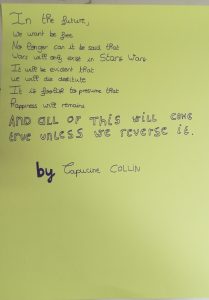 In the future,
We want be free
No longer can it be said that
Wars will only exist in Stars Wars
It will be evident that
we will die destitute
It is foolish to presume that
Happiness will remains
AND ALL OF THIS WILL COME
true unless we reverse it.
by Capucine COLLIN